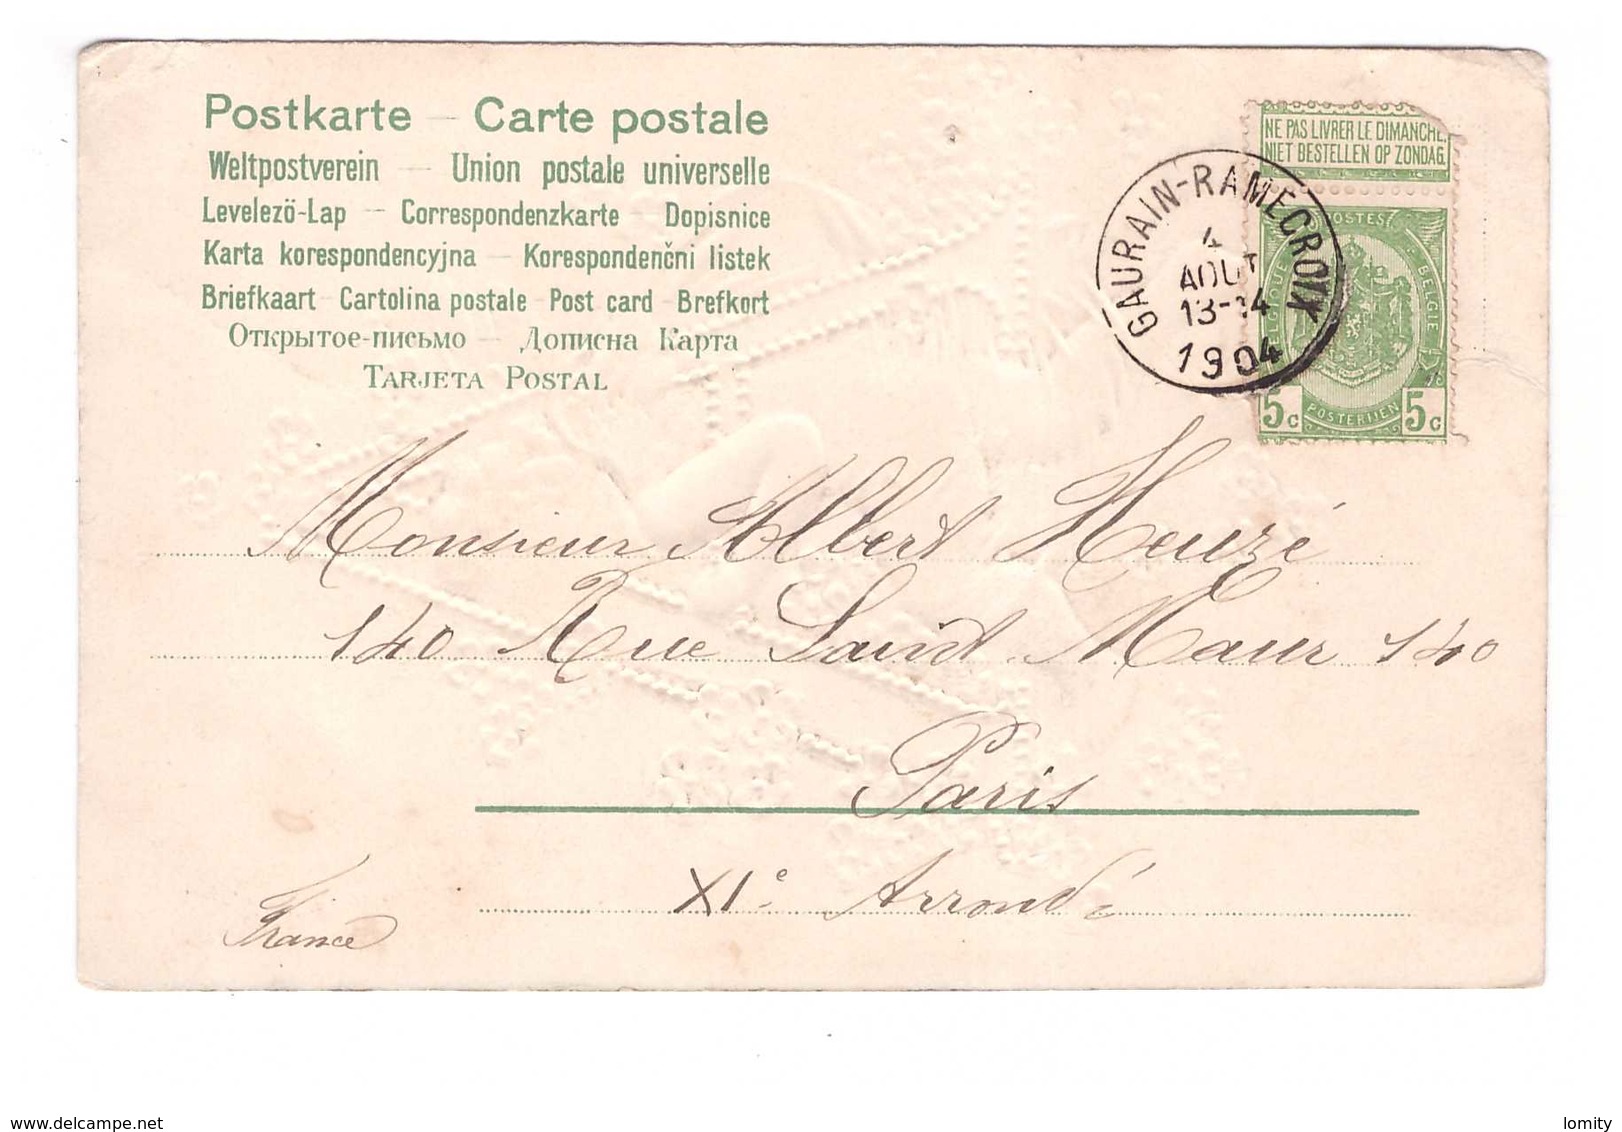 Postkarte – Carte postale
Weltpostverein – Union postale universelle
Levelezö-Lap – Correspondenzkarte – Dopisnice
Karta korespondencyjna – Korespondenčni listek
Briefkaart – Cartolina postale – Post card – Brefkort
Открытое-письмо – Дописна Карта
TARJETA POSTAL
NE PAS LIVRER LE DIMANCHE
NIET BESTELLEN OP ZONDAG.
GAURAIN-RAMECROIX
4
AOUT
13-14
1904
POSTES
BELGIQUE
BELGIE
5c POSTERIJEN 5c
Monsieur Albert Heuzé
140 Rue Saint Maur 140
Paris
XIe Arrondt
France
www.delcampe.net
lomity